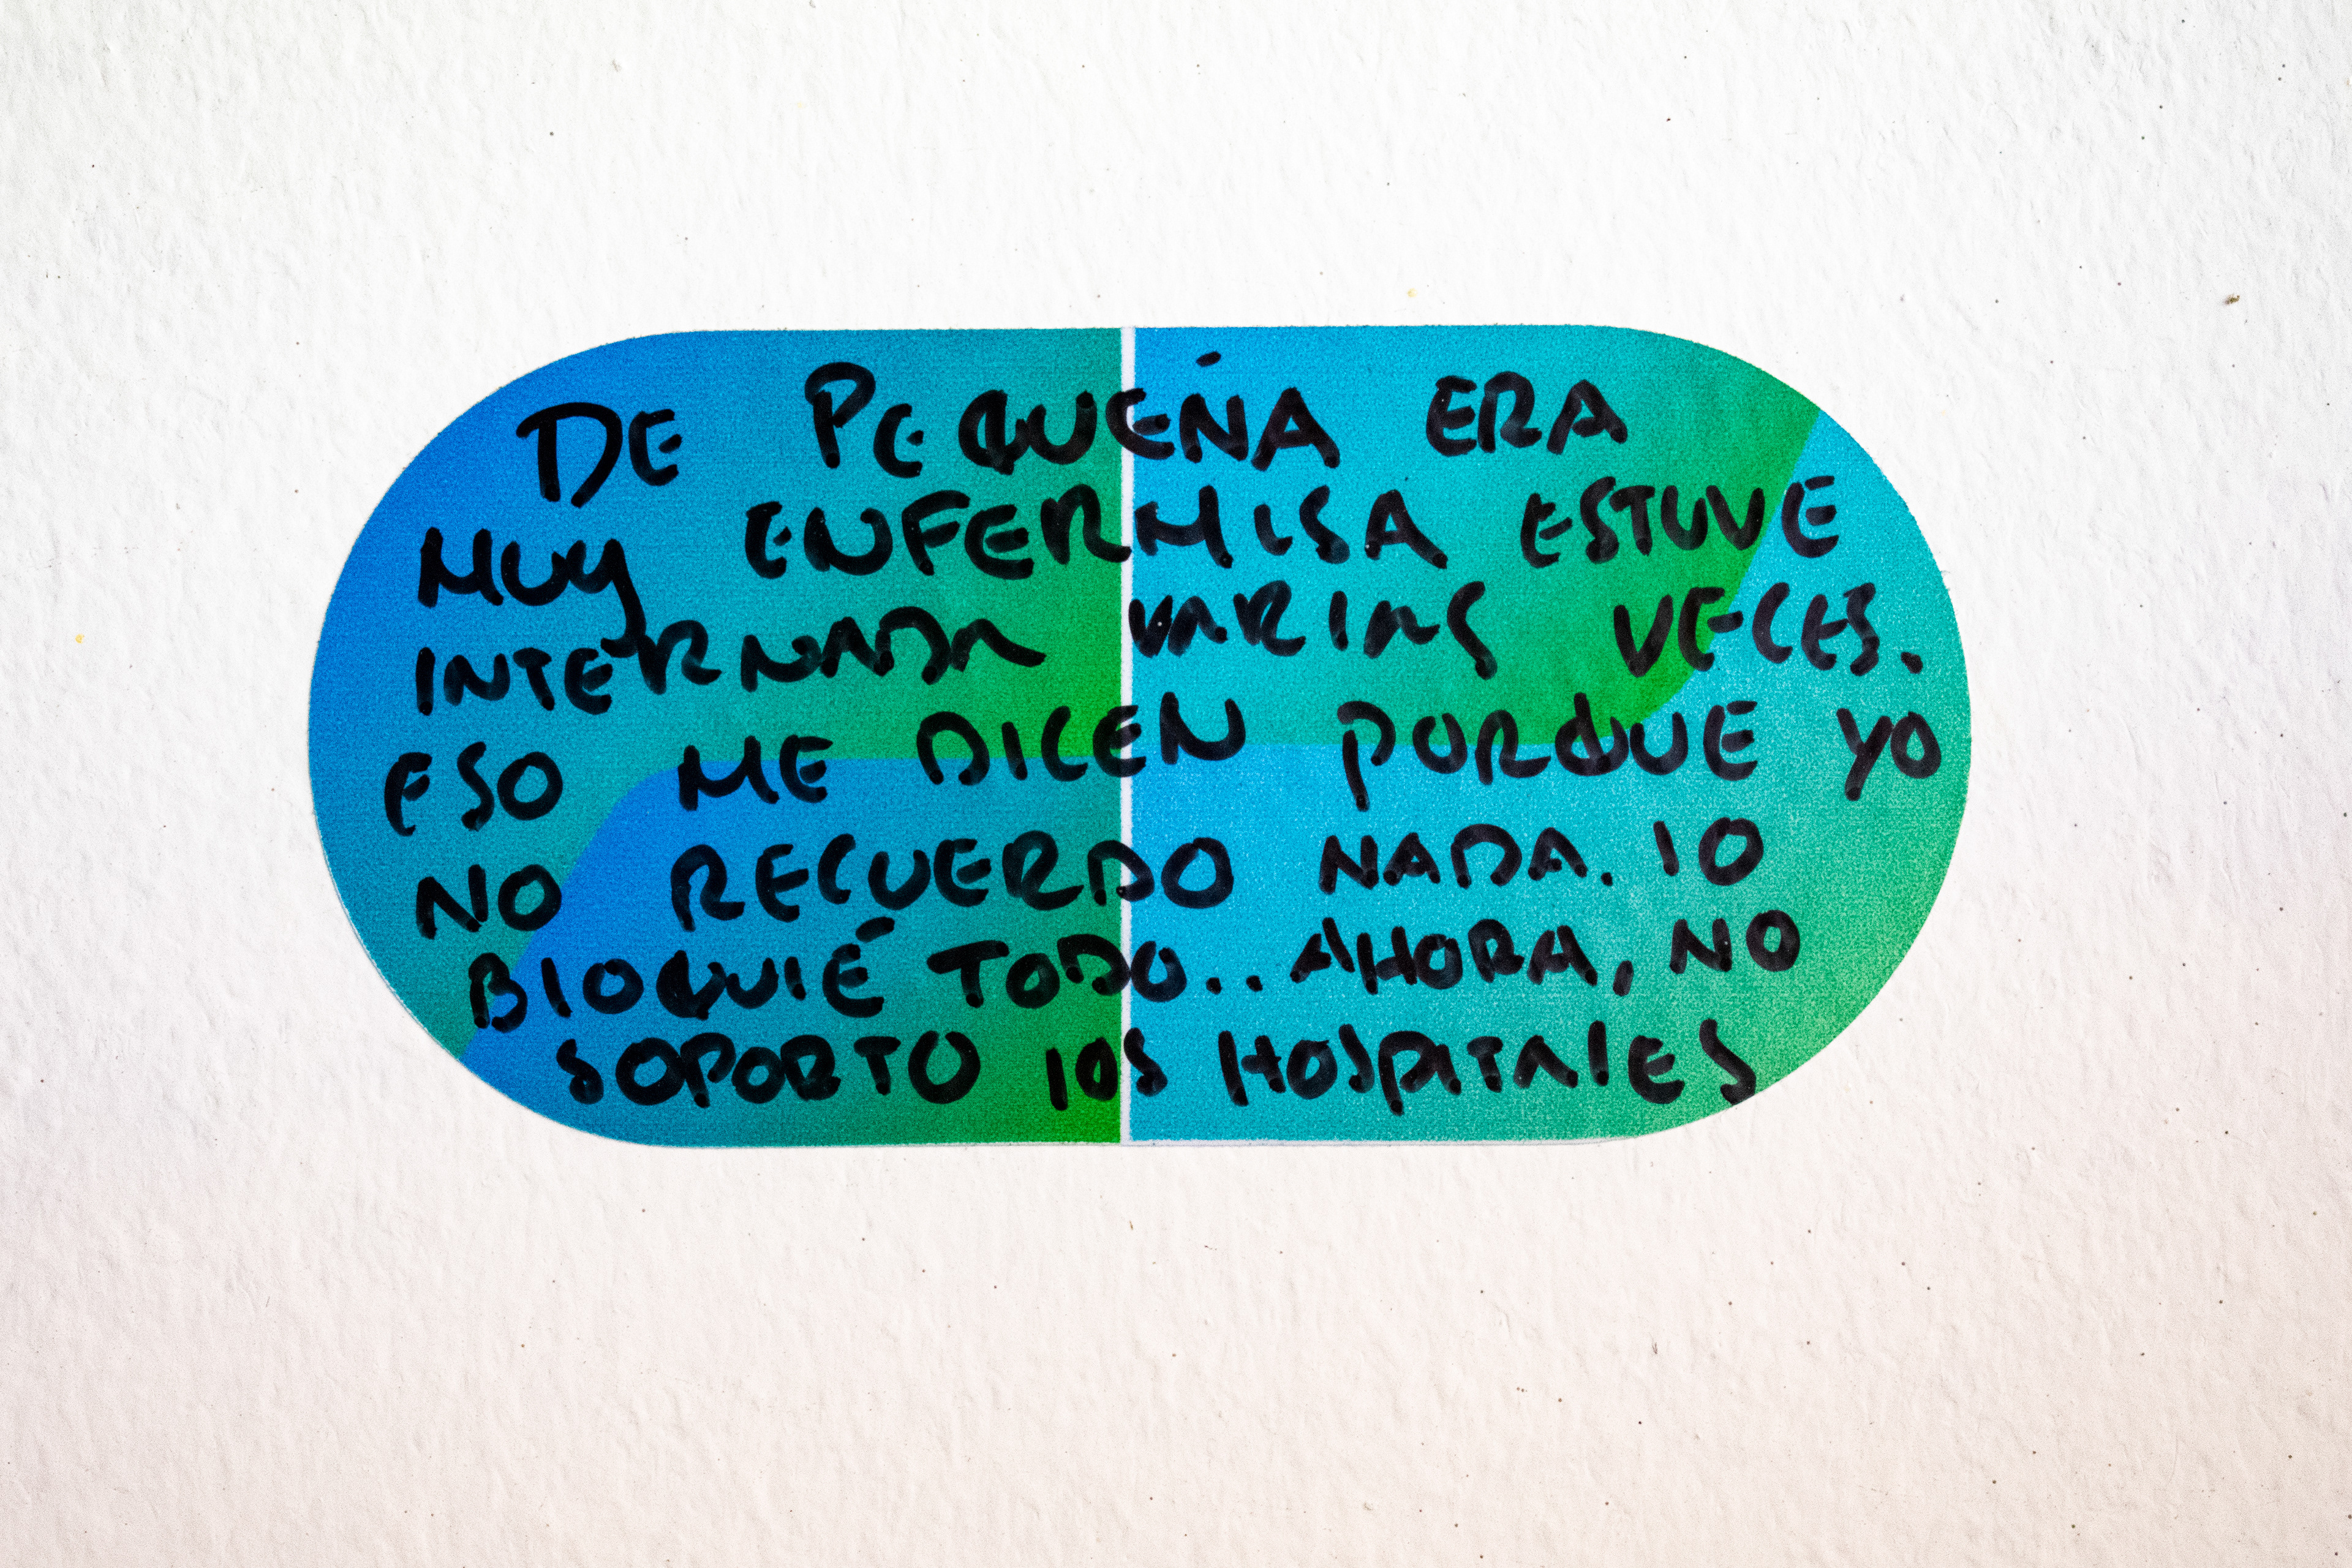 DE PEQUEÑA ERA
MUY ENFERMISA ESTUVE
INTERNADA VARIAS VECES.
ESO ME DICEN PORQUE YO
NO RECUERDO NADA. LO
BLOQUIÉ TODO.. AHORA, NO
SOPORTO LOS HOSPITALES